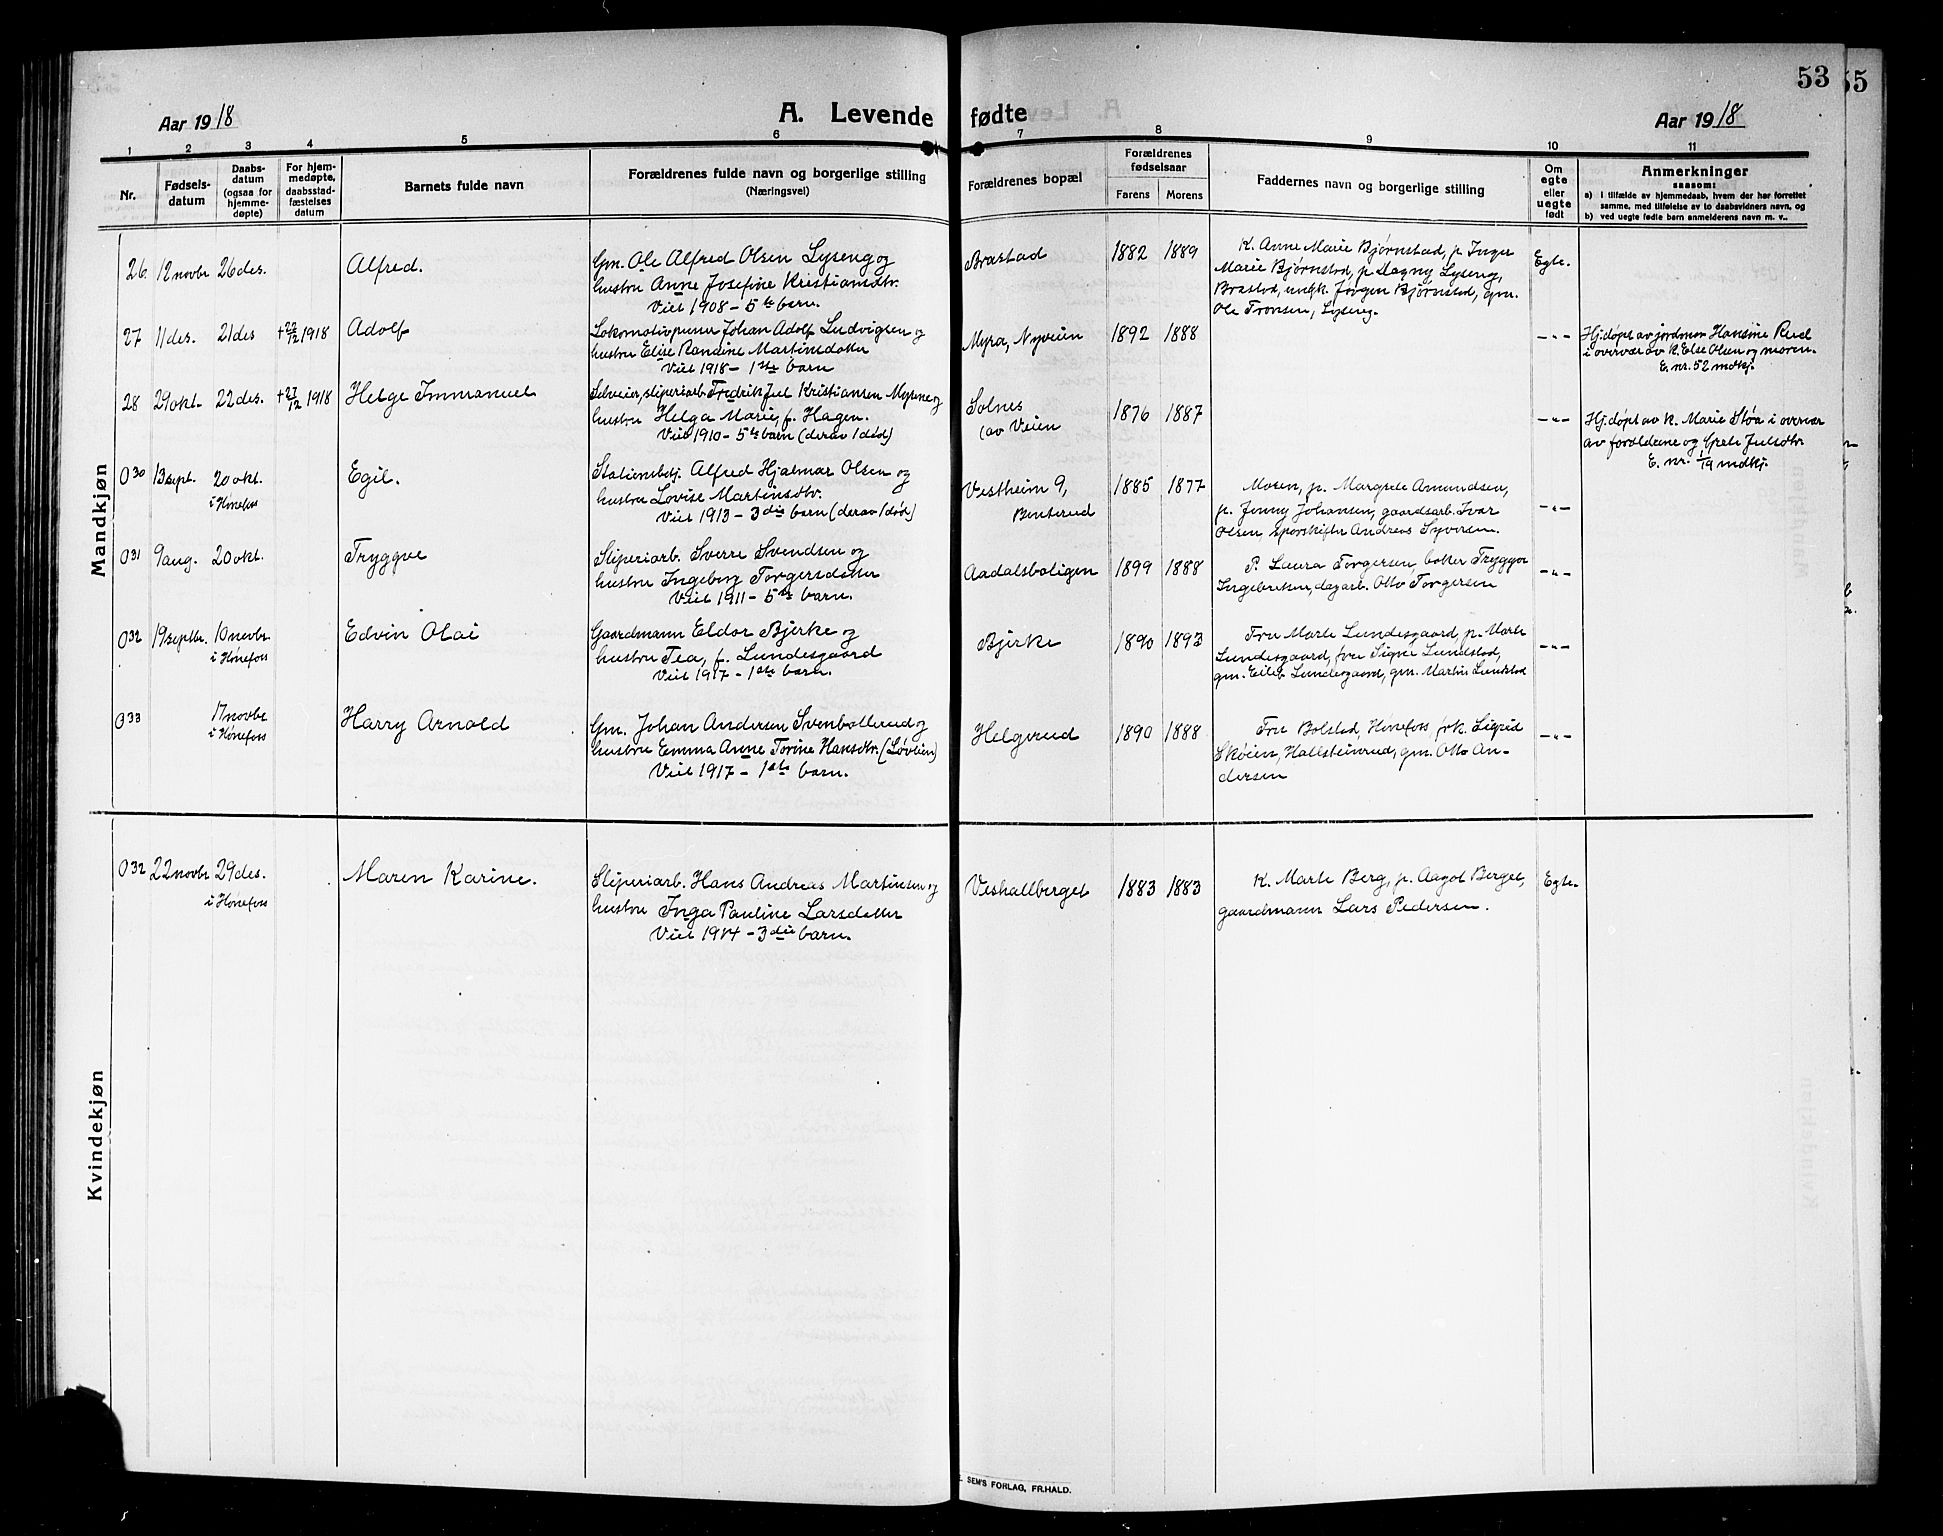 53
55
Aar 1918
A. Levende fødte
Aar 1918
1 2 3 4 5 6 7 8 9 10 11
Nr.
Fødsels-
datum
Daabs-
datum
(ogsaa for
hjemme-
døpte)
For hjem-
medøpte,
daabsstad-
fæstelses
datum
Barnets fulde navn
Forældrenes fulde navn og borgerlige stilling
(Næringsvei)
Forældrenes bopæl
Forældrenes
fødselsaar
Farens Morens
Faddernes navn og borgerlige stilling
Om
egte
eller
uegte
født
Anmerkninger
saasom:
a) i tilfælde av hjemmedaab, hvem der har forrettet
samme, med tilføielse av to daabsvidners navn, og
b) ved uegte fødte barn anmelderens navn m. v..
Mandkjøn
26. 12 novbr 26 des. Alfred.
Gm. Ole Alfred Olsen Lyseng og
hustru Anne Josefine Kristiansdtr.
Viet 1908 - 5te barn.
Bråstad 1882 1889
K. Anne Marie Bjørnstad, p. Inger
Marie Bjørnstad, p. Dagny Lyseng,
Bråstad, ungk. Jørgen Bjørnstad, gm.
Ole Tronsen, Lyseng.
Egte.
27 11 des. 21 des +22/12 1918 Adolf
Lokomotivpusser Johan Adolf Ludvigsen og
hustru Elise Randine Martinsdatter
Viet 1918 - 1ste barn
Myra, Nyveien 1892 1888
-"-
Hj.døpt av jordmor Hansine Rud
i overvær av k. Else Olsen og moren.
E. nr. 52 mdkj.
28 29 okt. 22 des. +27/12 1918 Helge Immanuel
Selveier, sliperiarb. Fredrik Jul Kristiansen Myrene og
hustru Helga Marie, f. Hagen.
Viet 1910 - 5te barn (derav 1 død)
Solnes
(av Veien
1876 1887
-"-
Hj.døpt av k. Marie Støa i overvær
av forældrene og Grete Julsdtr
E. nr. 1/19 mdkj.
030 13 sept. 20 okt.
i Hønefoss
Egil.
Stationsbetj. Alfred Hjalmar Olsen og
hustru Lovise Martinsdtr.
Viet 1913 - 3die barn (derav 1 død)
Vestheim 9,
Benterud
1885 1877
Moren, p. Margrete Amundsen,
p. Jenny Johansen, gaardsarb. Ivar
Olsen, sporskifter Andreas Syversen.
-"-
031 9 aug. 20 okt. Tryggve
Sliperiarb. Sverre Svendsen og
hustru Ingeborg Torgersdatter
Viet 1911 - 5te barn.
Aadalsboligen 1899 1888
P. Laura Torgersen, Tryggve
Ingebretsen, dagarb. Otto Torgersen
-"-
032 19 septbr. 10 novbr
i Hønefoss
Edvin Olai
Gaardmann Eldor Bjerke og
hustru Tea, f. Lundesgaard
Viet 1917 - 1ste barn.
Bjerke 1890 1893
Fru Marte Lundesgaard, p. Marte
Lundesgaard, fru Signe Lundstad,
gm. Eilef Lundesgaard, gm. Martin Lundstad
-"-
033 17 novbr
i Hønefoss
Harry Arnold
Gm. Johan Andersen Svenballerud og
hustru Emma Anne Torine Hansdtr. (Løvlien)
Viet 1917 - 1ste barn.
Helgerud 1890 1888
Fru Bolstad, Hønefoss, frk. Sigrid
Skøien, Hallsteinrud, gm. Otto An-
dersen
-"-
Kvindekjøn
032 22 novbr 29 des.
i Hønefoss
Maren Karine.
Sliperiarb. Hans Andreas Martinsen og
hustru Inga Pauline Larsdatter
Viet 1914 - 3die barn.
Veshallberget 1883 1883
K. Marte Berg, p. Aagot Berget,
gaardmann Lars Pedersen.
Egte.
SEM'S FORLAG, FR.HALD.